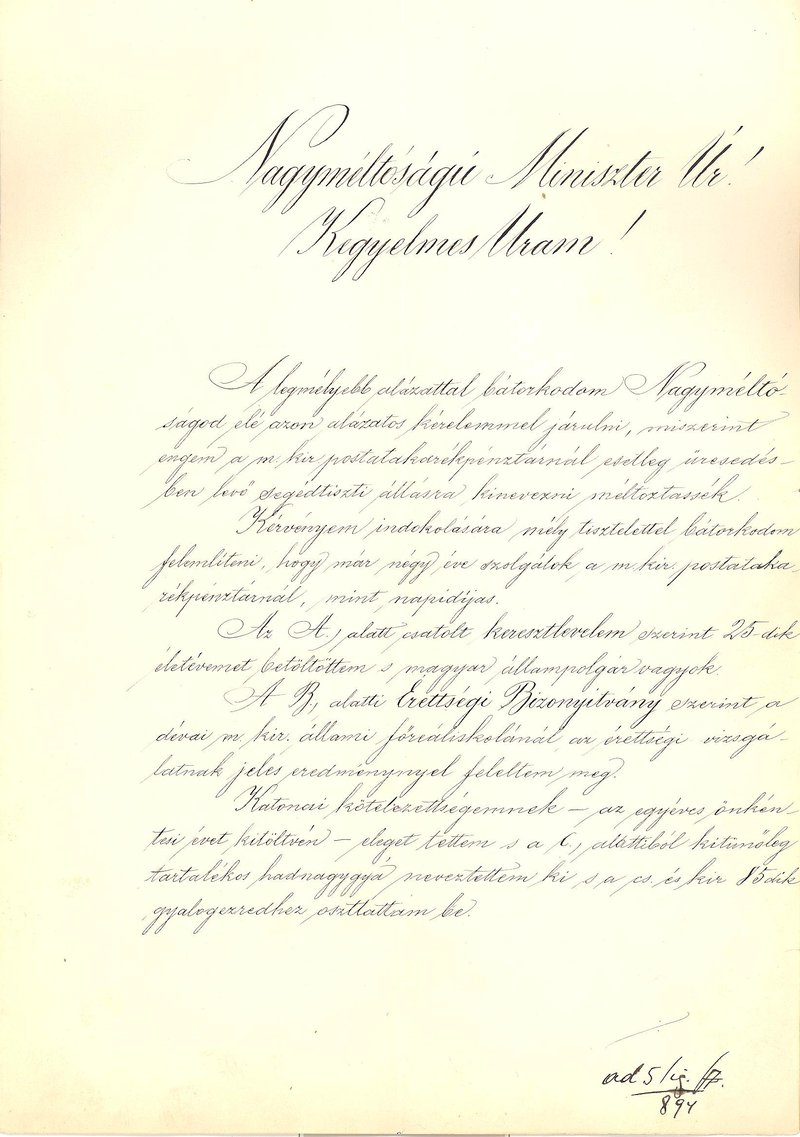 Nagyméltóságú Miniszter Úr!
Kegyelmes Uram!
A legmélyebb alázattal bátorkodom Nagyméltó-
ságod elé azon alázatos kérelemmel járulni, miszerint
engem a m. kir. postatakarékpénztárnál esetleg üresedés-
ben levő segédtiszti állásra kinevezni méltóztassék.
Kérvényem indokolására mély tisztelettel bátorkodom
felemlíteni, hogy már négy éve szolgálok a m. kir. postataka-
rékpénztárnál, mint napidíjas.
Az A., alatt csatolt keresztlevelem szerint 25-dik
életévemet betöltöttem s magyar állampolgár vagyok.
A B., alatti Érettségi Bizonyitvány szerint a
dévai m. kir. állami főreáliskolánál az érettségi vizsgá-
latnak jeles eredménynyel feleltem meg.
Katonai kötelezettségemnek – az egyéves önkén-
tesi évet kitöltvén – eleget tettem s a C., alattiból kitünőleg
tartalékos hadnagygyá neveztettem ki s a cs. és kir 85dik
gyalogezredhez osztattam be.
ad 5/ig.
894